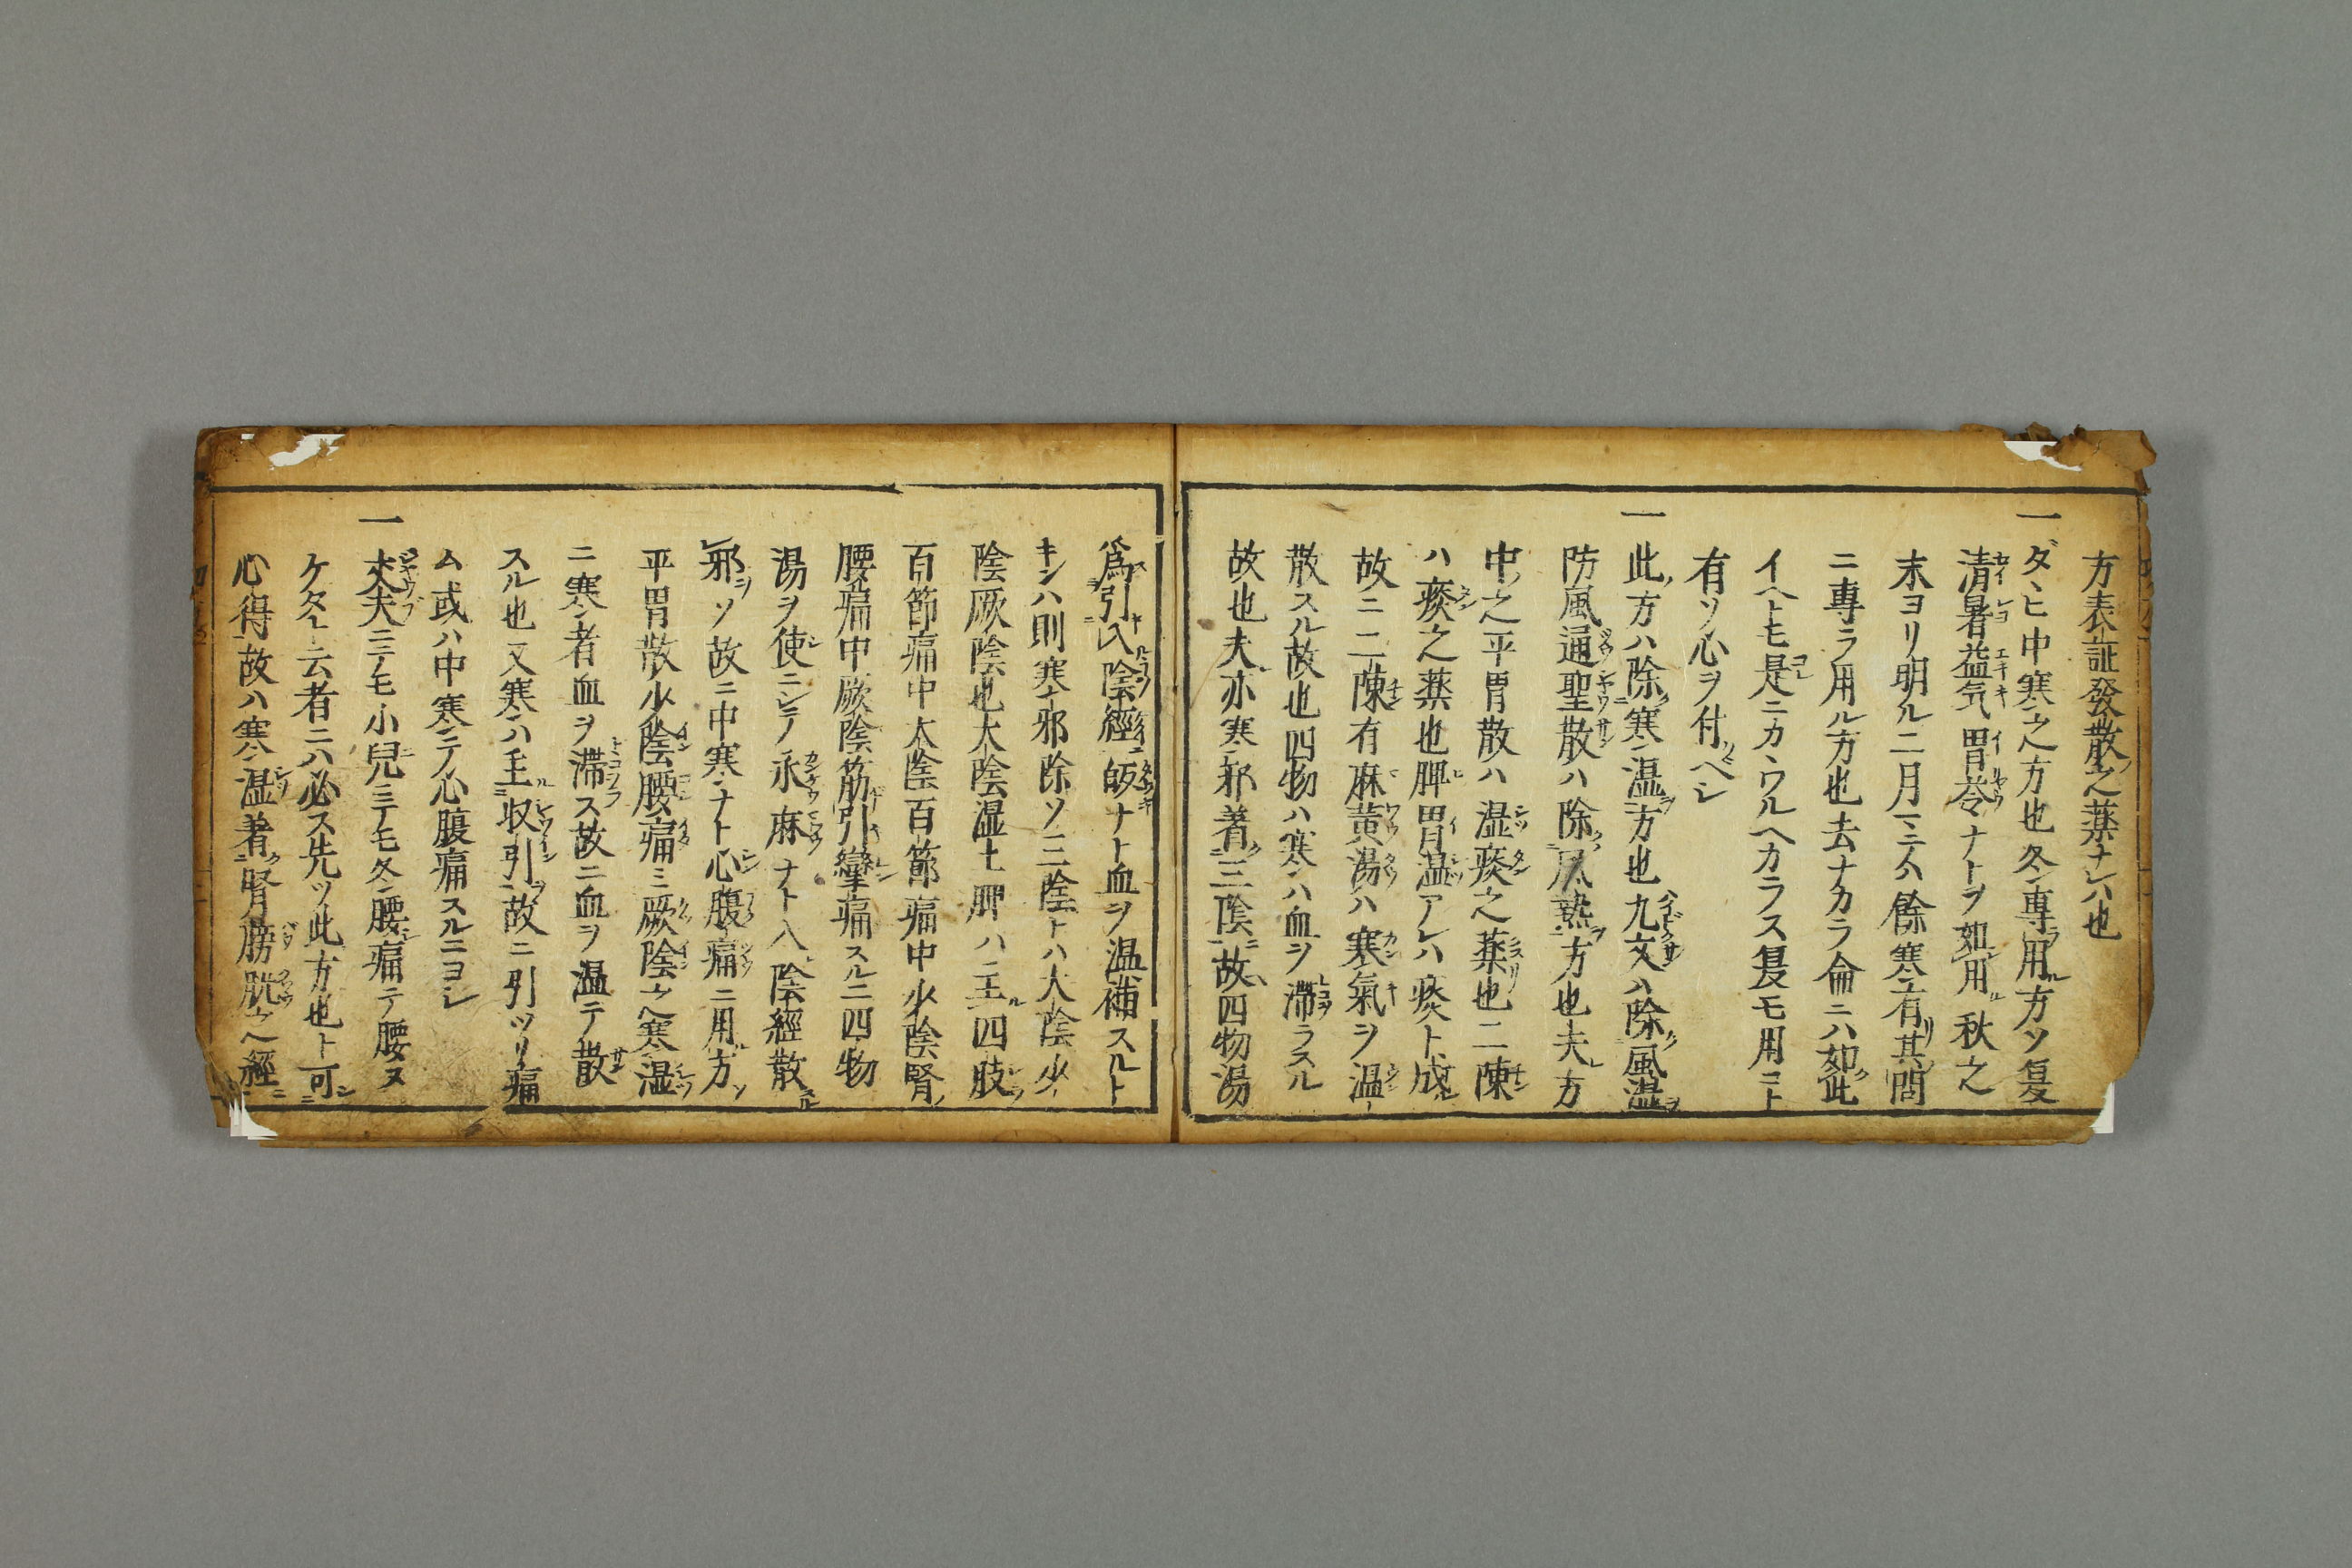 方表証發散之薬ナレハ也
一ダヽヒ中寒之方也冬専用方ソ夏
清暑益気胃苓ナトヲ如用秋之
末ヨリ明ル二月マテハ餘寒有其間
ニ専ラ用ル方也去ナカラ侖ニハ如此
イヘトモ是ニカヽワルヘカラス夏モ用コト
有ソ心ヲ付ヘシ
一此方ハ除寒温方也九文ハ除風湿
防風通聖散ハ除風熱方也夫方
中之平胃散ハ湿痰之薬也二陳
ハ痰之薬也脾胃湿アレハ痰ト成
故ニ二陳有麻黄湯ハ寒氣ヲ温
散スル故也四物ハ寒ハ血ヲ滞ラスル
故也夫亦寒邪著三陰故四物湯
為引入陰經皈ナト血ヲ温補スルト
キンハ則寒邪除ソ三陰トハ大陰少
陰厥陰也大陰湿土脾ハ主四肢
百節痛中太陰百節痛中少陰腎
腰痛中厥陰筋引攣痛スルニ四物
湯ヲ使ニシテ永麻ナト入陰經散
邪ソ故ニ中寒ナト心腹痛ニ用方
平胃散少陰腰痛ミ厥陰ヘ寒湿
ニ寒者血ヲ滞ス故ニ血ヲ温テ散
スル也又寒ハ主収引故ニ引ツリ痛
ム或ハ中寒テ心腹痛スルニヨシ
一大夫ニテモ小兒ニテモ冬腰痛テ腰ヌ
ケタルト云者ニハ必ス先ツ此方也ト可
心得故ハ寒湿著腎膀胱ヘ經